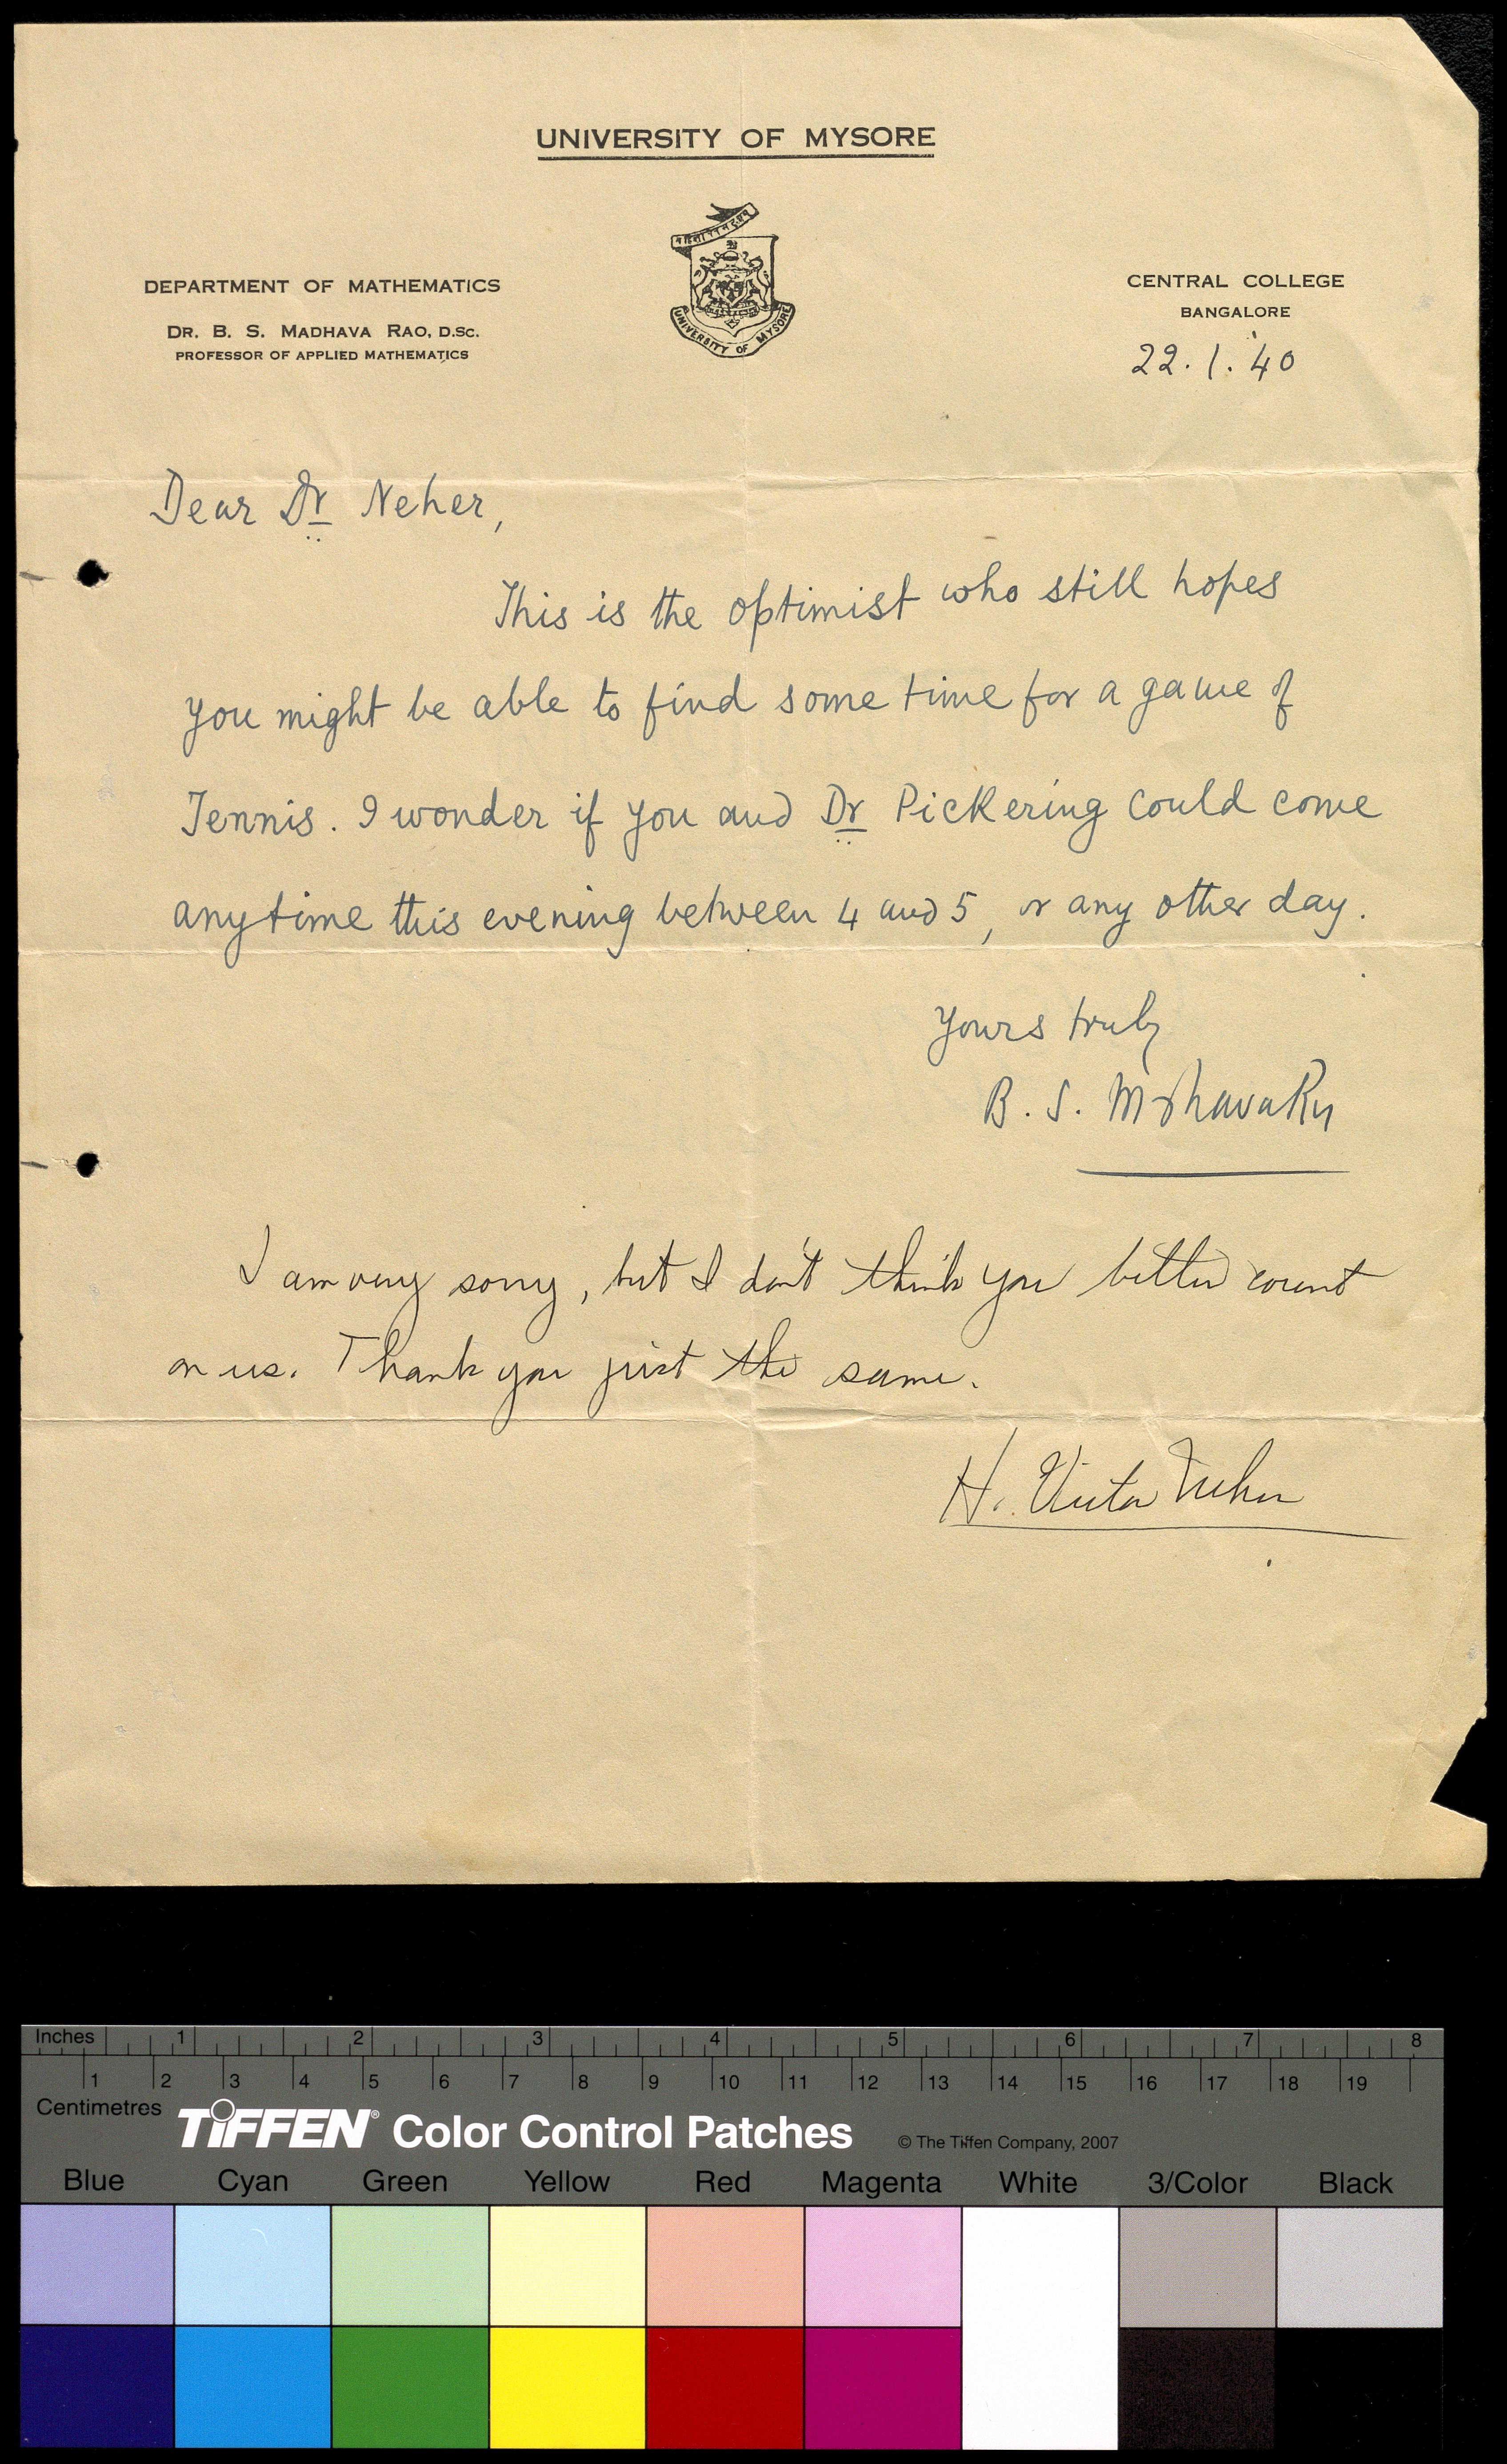 UNIVERSITY OF MYSORE
UNIVERSITY OF MYSORE
DEPARTMENT OF MATHEMATICS
DR. B. S. MADHAVA RAO, D.SC.
PROFESSOR OF APPLIED MATHEMATICS
CENTRAL COLLEGE
BANGALORE
22.1.'40
Dear Dr Neher,
This is the optimist who still hopes
you might be able to find some time for a game of
Tennis. I wonder if you and Dr Pickering could come
anytime this evening between 4 and 5, or any other day.
Yours truly
B. S. Madhava Rao
I am very sorry, but I don't think you better count
on us. Thank you just the same.
H. Victor Neher
Inches 1 2 3 4 5 6 7 8
1 2 3 4 5 6 7 8 9 10 11 12 13 14 15 16 17 18 19
Centimetres
TIFFEN® Color Control Patches © The Tiffen Company, 2007
Blue Cyan Green Yellow Red Magenta White 3/Color Black